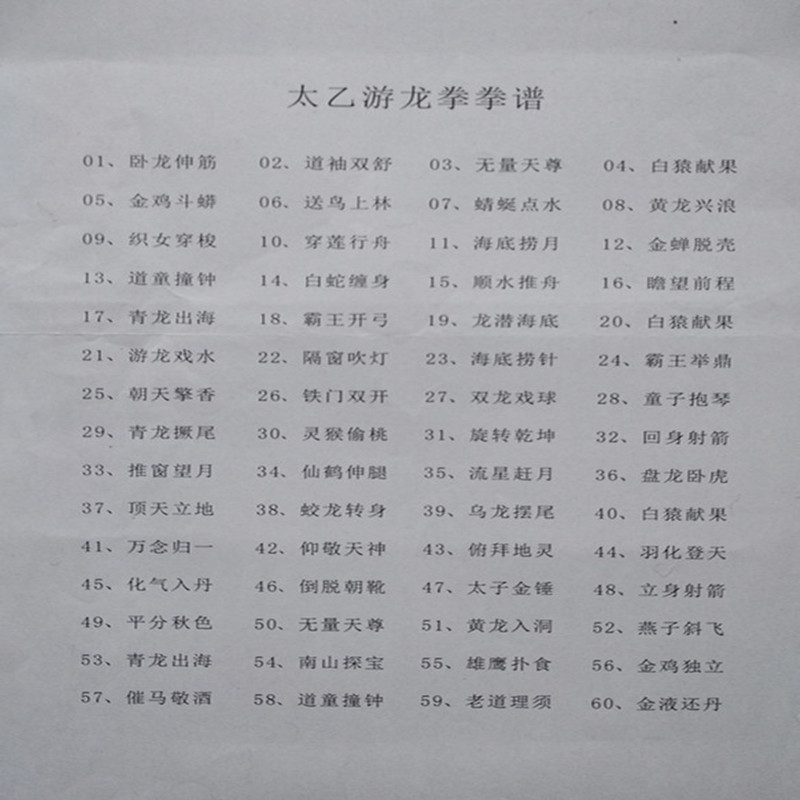 太乙游龙拳拳谱
01、卧龙伸筋 02、道袖双舒 03、无量天尊 04、白猿献果
05、金鸡斗蟒 06、送鸟上林 07、蜻蜓点水 08、黄龙兴浪
09、织女穿梭 10、穿莲行舟 11、海底捞月 12、金蝉脱壳
13、道童撞钟 14、白蛇缠身 15、顺水推舟 16、瞻望前程
17、青龙出海 18、霸王开弓 19、龙潜海底 20、白猿献果
21、游龙戏水 22、隔窗吹灯 23、海底捞针 24、霸王举鼎
25、朝天擎香 26、铁门双开 27、双龙戏球 28、童子抱琴
29、青龙撅尾 30、灵猴偷桃 31、旋转乾坤 32、回身射箭
33、推窗望月 34、仙鹤伸腿 35、流星赶月 36、盘龙卧虎
37、顶天立地 38、蛟龙转身 39、乌龙摆尾 40、白猿献果
41、万念归一 42、仰敬天神 43、俯拜地灵 44、羽化登天
45、化气入丹 46、倒脱朝靴 47、太子金锤 48、立身射箭
49、平分秋色 50、无量天尊 51、黄龙入洞 52、燕子斜飞
53、青龙出海 54、南山探宝 55、雄鹰扑食 56、金鸡独立
57、催马敬酒 58、道童撞钟 59、老道理须 60、金液还丹